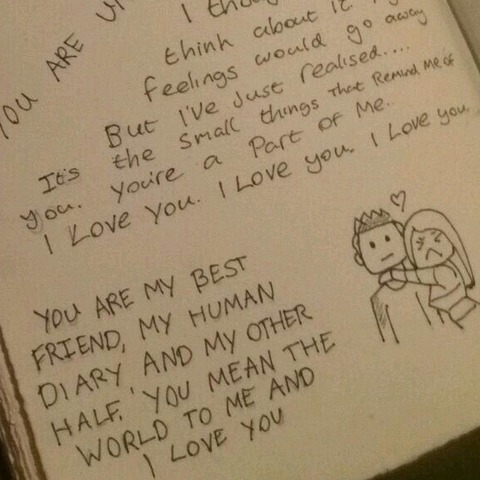 YOU ARE
I
think about it
feelings would go away
But I've Just realised....
It's the small things that Remind Me of
you. You're a Part of Me.
I Love you. I Love you. I Love you.
YOU ARE MY BEST
FRIEND, MY HUMAN
DIARY AND MY OTHER
HALF. YOU MEAN THE
WORLD TO ME AND
I LOVE YOU